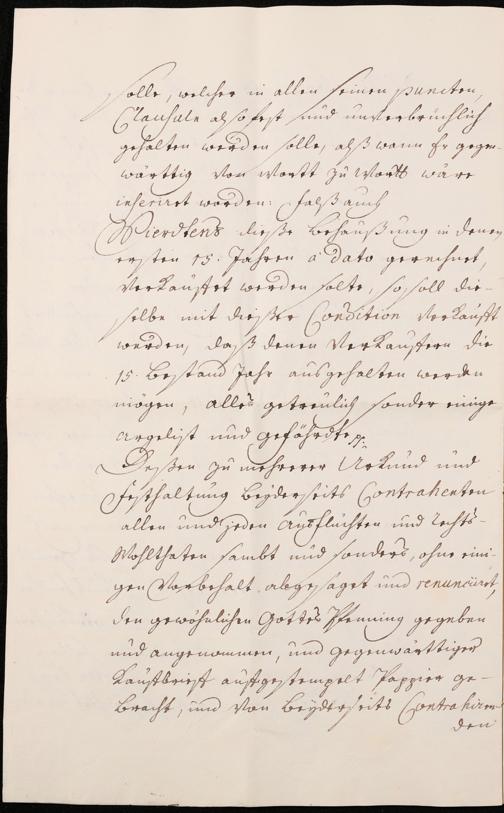 solle, welcher in allen seinen puncten,
Clausuln also fest und unverbrüchlich
gehalten werden solle, alß wann Er gegen-
wärttig von Wortt zu Wortt wäre
inseriret worden: Falß auch
Vierdtens dieße Behaußung in denen
ersten 15. Jahren à dato gerechnet,
verkaufft werden solte, so soll die-
selbe mit dießer Condition verkaufft
werden, daß denen Verkauffern die
15. Bestand Jahr ausgehalten werden
mögen, alles getreulich sonder einige
argelist und gefährdte
Deßen zu mehrerer Urkund und
Festhaltung beyderseits Contrahenten
allen und jeden Ausflüchten und Rechts-
Wohlthaten sambt und sonders, ohne eini-
gen Vorbehalt abgesaget und renunciiret,
den gewöhnlichen Gottes Pfenning gegeben
und angenommen, und gegenwärttiger
Kauffbrieff auff gestempelt Pappier ge-
bracht, und von beyderseits Contrahiren-
den